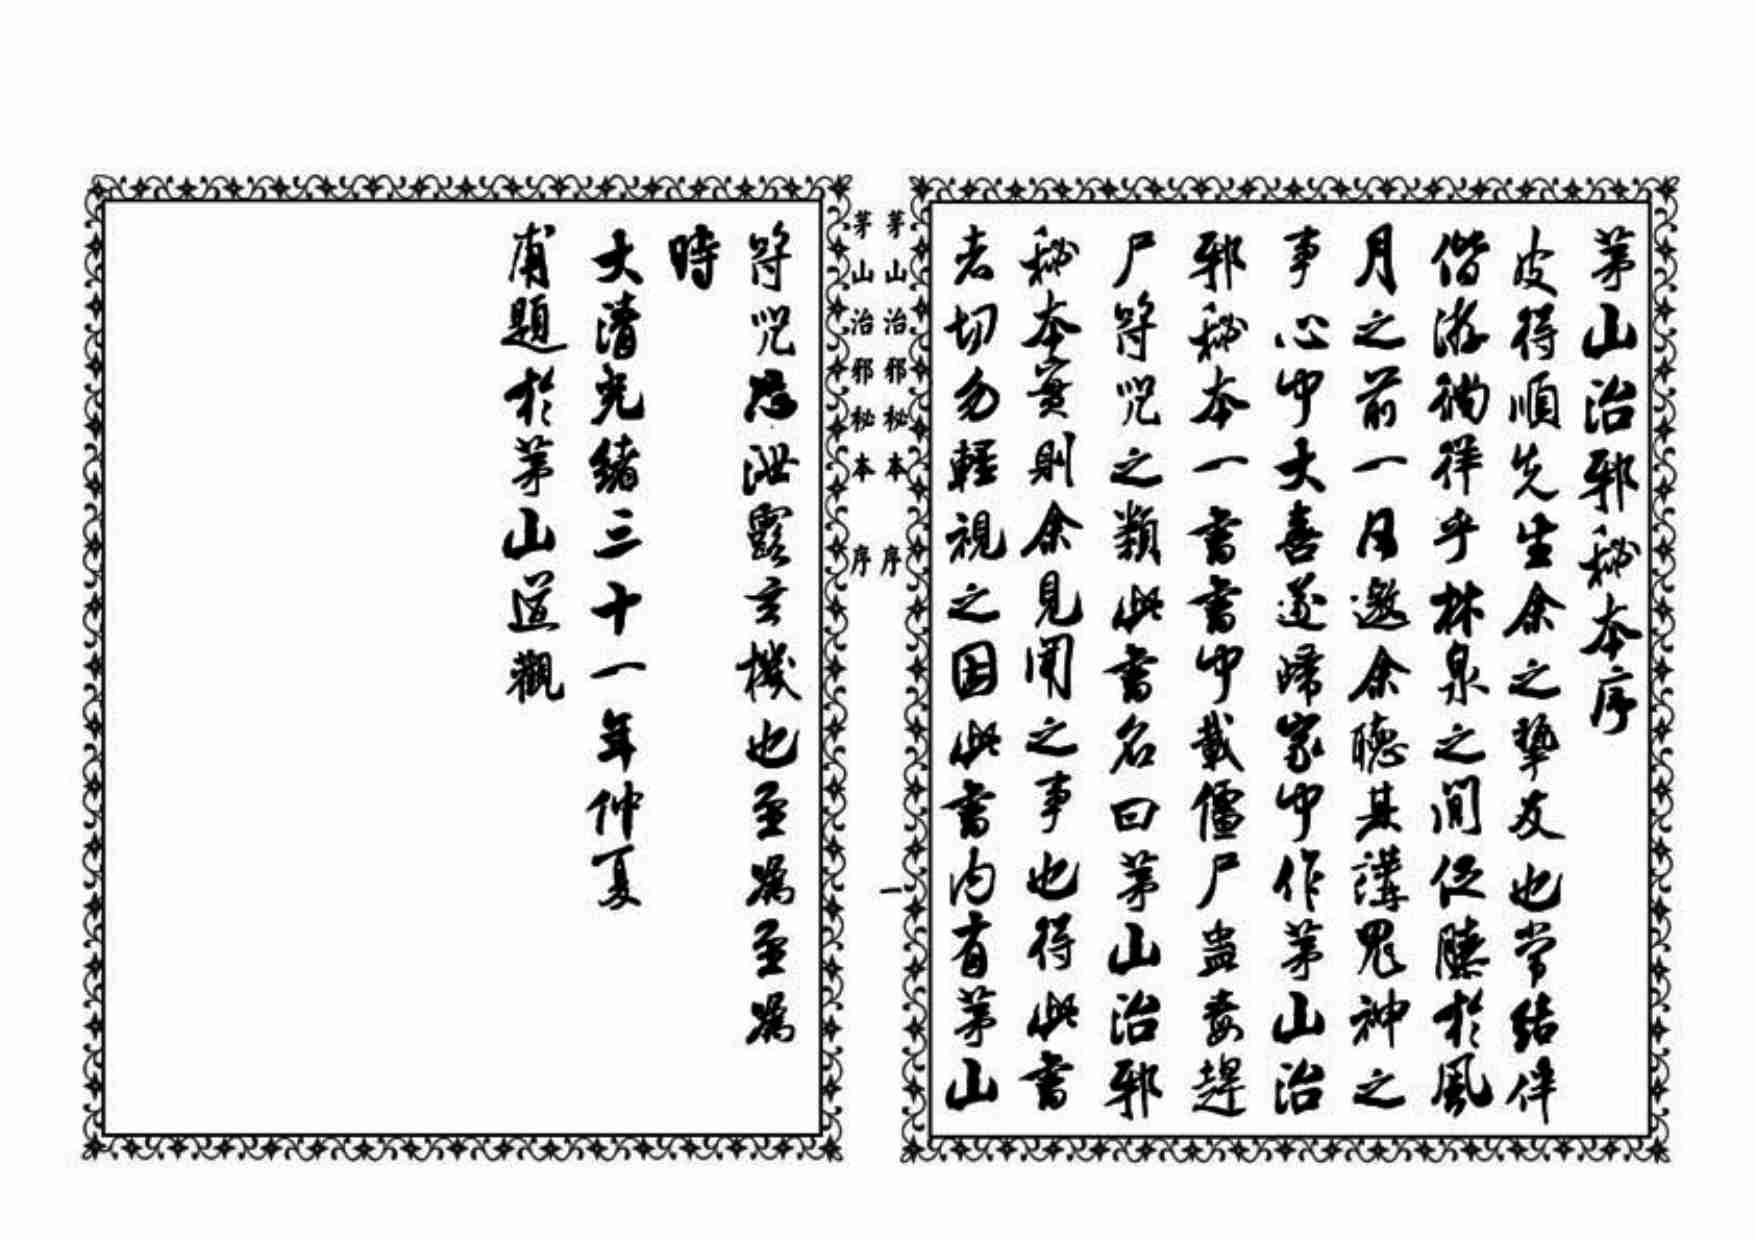 茅山治邪秘本序
皮得順先生余之摯友也常結伴
偕游徜徉乎林泉之間促膝於風
月之前一日邀余聽其講鬼神之
事心中大喜遂歸家中作茅山治
邪秘本一書書中載僵尸蛊毒趕
尸符咒之類此書名曰茅山治邪
秘本實則余見聞之事也得此書
者切勿輕視之因此書内有茅山
茅山治邪秘本 序
一
茅山治邪秘本 序
符咒恐泄露玄機也至為至為
時
大清光緒三十一年仲夏
甫題於茅山道觀